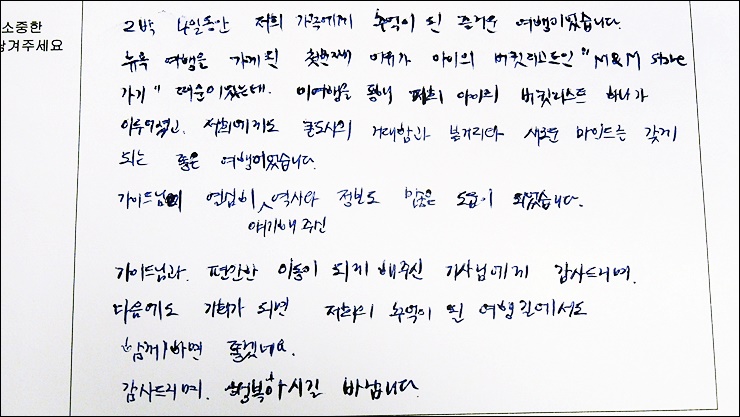 소중한
남겨주세요
2박 4일동안 저희 가족에게 추억이 된 즐거운 여행이었습니다.
뉴욕 여행을 가게된 첫번째 이유가 아이의 버킷리스트인 "M&M store
가기" 때문이었는데. 이여행을 통해 저희 아이의 버킷리스트 하나가
이루어졌고. 저희에게도 큰도시의 거대함과 볼거리와 새로운 마인드를 갖게
되는 좋은 여행이었습니다.
가이드님의 열심히 역사와 정보도 많은 도움이 되었습니다.
얘기해 주신
가이드님과. 편안한 이동이 되게 해주신 기사님에게 감사드리며.
다음에도 기회가 되면 저희의 추억이 될 여행길에서도
함께하면 좋겠네요.
감사드리며. 행복하시길 바랍니다.